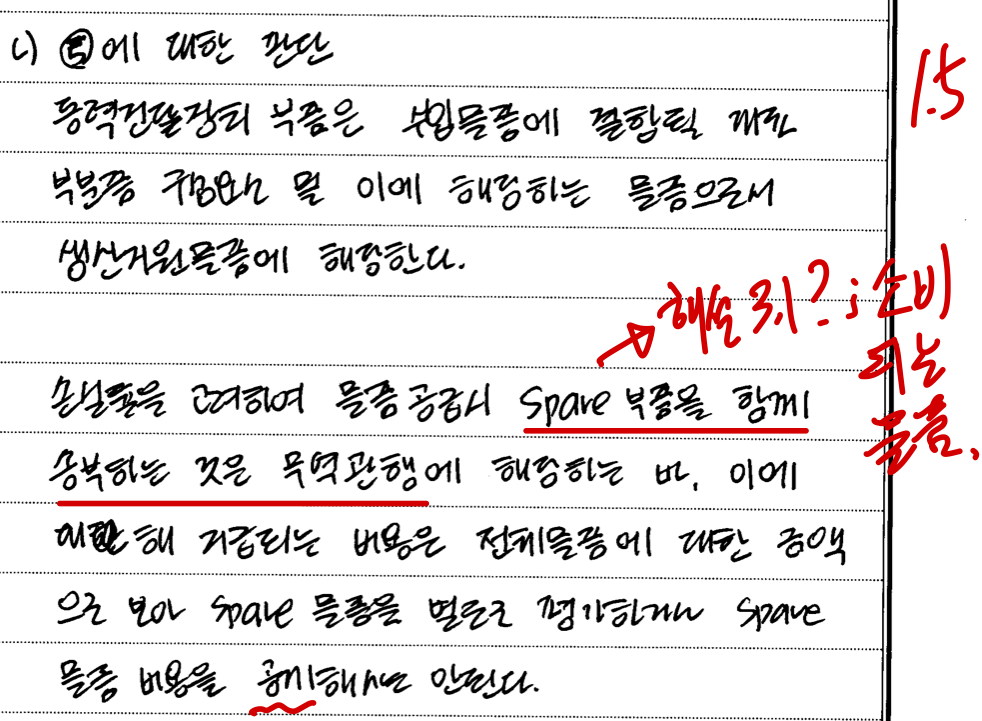 ㄴ) ㉤에 대한 판단
1.5
동력전달장치 부품은 수입물품에 결합된 재료
부분품 구성요소 및 이에 해당하는 물품으로서
생산지원물품에 해당한다.
→ 해설 3.1? ; 소비
되는
물품.
손실율을 고려하여 물품 공급시 Spare 부품을 함께
송부하는 것은 무역관행에 해당하는 바, 이에
대해 지급되는 비용은 전체물품에 대한 금액
으로 보아 Spare 물품을 별도로 평가하거나 Spare
물품 비용을 공제해서는 안된다.